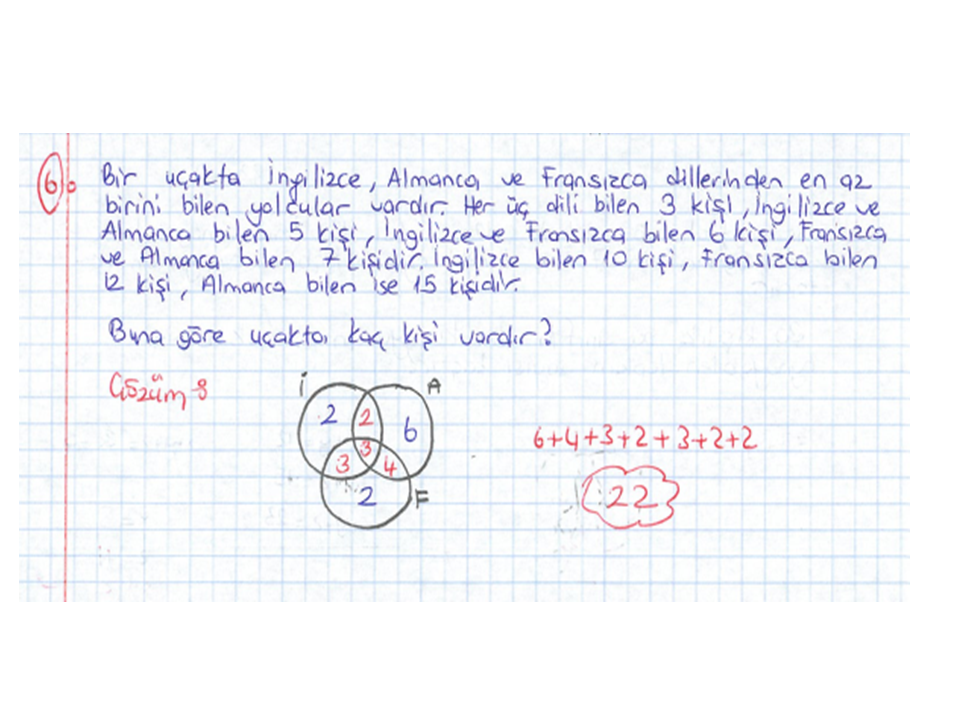 6. Bir uçakta İngilizce, Almanca ve Fransızca dillerinden en az
birini bilen yolcular vardır. Her üç dili bilen 3 kişi, İngilizce ve
Almanca bilen 5 kişi, İngilizce ve Fransızca bilen 6 kişi, Fransızca
ve Almanca bilen 7 kişidir. İngilizce bilen 10 kişi, Fransızca bilen
12 kişi, Almanca bilen ise 15 kişidir.
Buna göre uçakta kaç kişi vardır?
Çözüm:
İ A
2 2 6
3
3 4
2 F
6+4+3+2+3+2+2
22